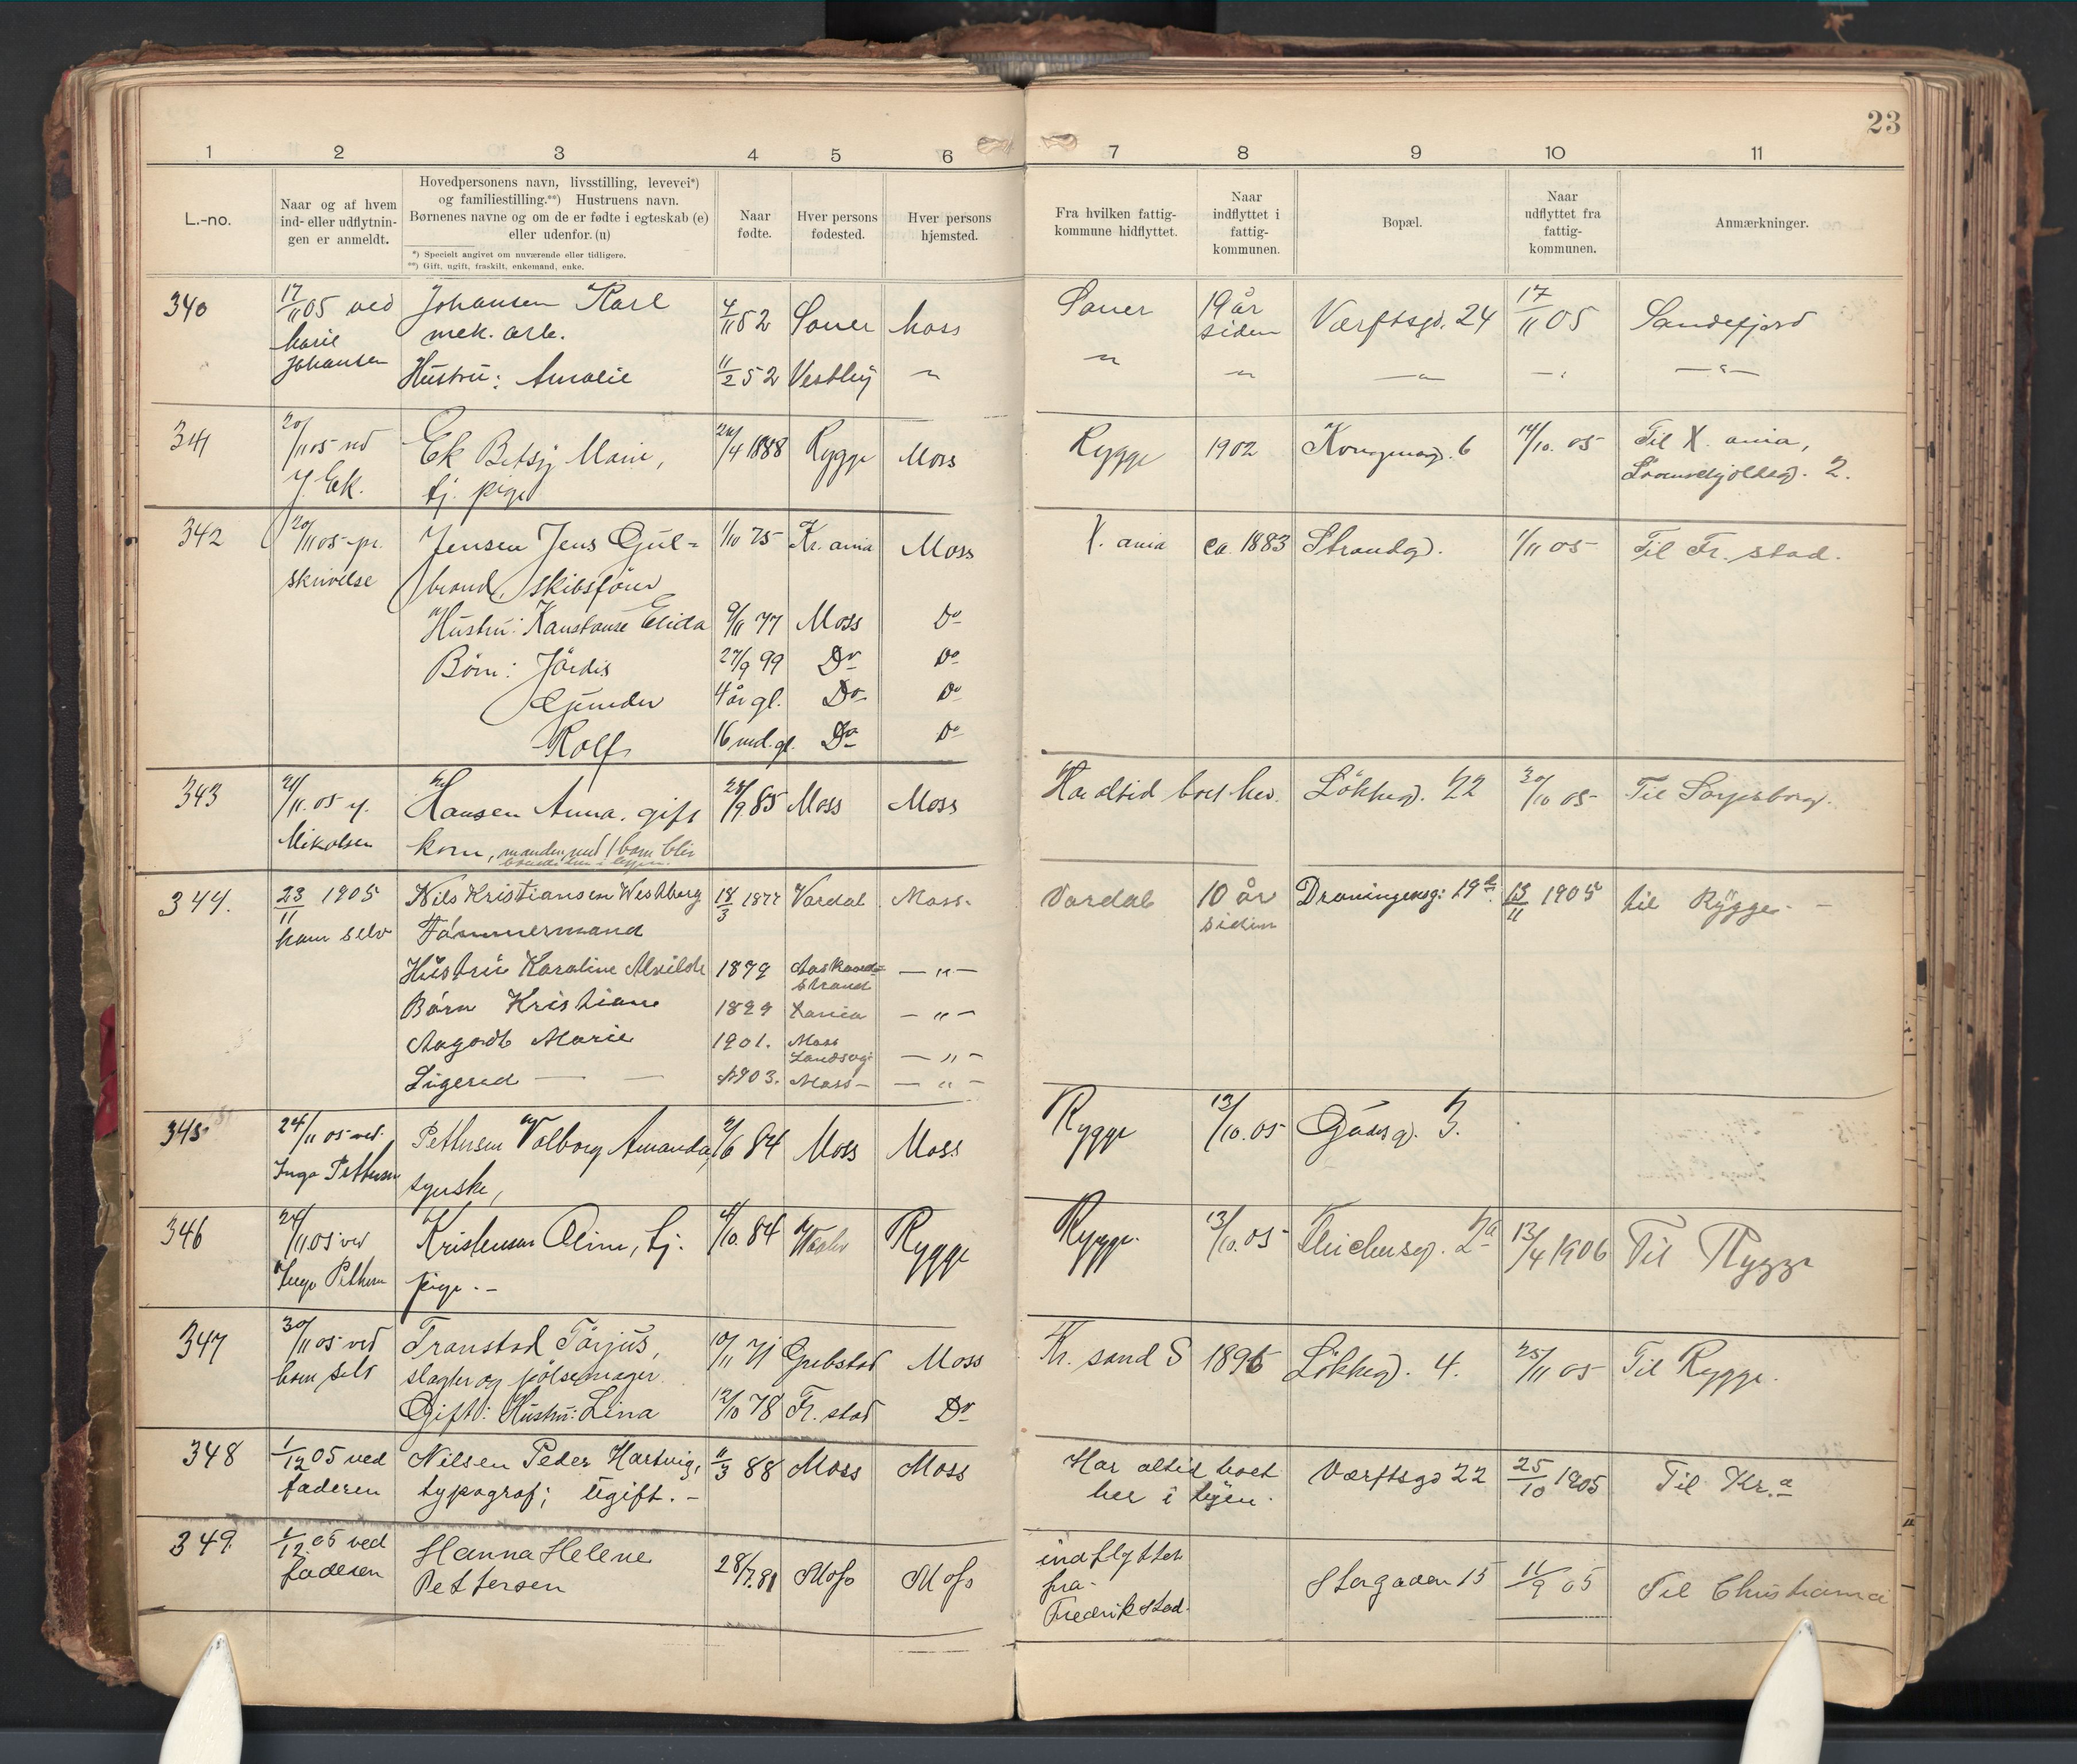 23
1 2 3 4 5 6 7 8 9 10 11
L.-no.
Naar og af hvem
ind- eller udflytnin-
gen er anmeldt.
Hovedpersonens navn, livsstilling, levevei*)
og familiestilling.**) Hustruens navn.
Børnenes navne og om de er fødte i egteskab (e)
eller udenfor. (u)
*) Specielt angivet om nuværende eller tidligere.
**) Gift, ugift, fraskilt, enkemand, enke.
Naar
fødte.
Hver persons
fødested.
Hver persons
hjemsted.
Fra hvilken fattig-
kommune hidflyttet.
Naar
indflyttet i
fattig-
kommunen.
Bopæl.
Naar
udflyttet fra
fattig-
kommunen.
Anmærkninger.
340 17/11 05 ved Johansen Karl 4/11 52 Soner Moss Soner 19 år Værftsgd. 24 17/11 05 Sandefjord
Marie mek. arb. siden
Johansen Hustru: Amalie 11/2 52 Vestby " " " " " "
341 20/11 05 ved Ek Betsy Marie, 24/4 1888 Rygge Moss Rygge 1902 Kongensgd. 6 14/10. 05 Til X. ania,
J. Ek. tj. pige 2.
342 20/11 05 pr. Jensen Jens Gul= 1/10 75 Kr. ania Moss X. ania ca. 1883 Strandgd. 1/11 05 Til Fr. stad.
skrivelse brand, skibsfører
Hustru: Konstanse Elida 9/11 77 Moss Do
Børn: Jördis 27/9 99 Do Do
Gunder 4 år gl. Do Do
Rolf 16 md. gl. Do Do
343 21/11. 05 v. Hansen Anna, gift 28/9. 85 Moss Moss Har altid boet her. Løkkegd. 22 30/10 05 Til Sarpsborg.
Mikalsen kone, manden, med 1 barn blir
boende her i byen.
344. 23/11 1905 Nils Kristiansen Westberg 18/3 1877 Vardal Moss. Vardal 10 år Droningensg: 19 b. 13/11 1905 til Rygge. -
ham selv Tømmermand siden
Hustru Karoline Alvilde 1879 Aaskaard= - " -
strand
Børn Kristiane 1899 Xania - " -
Aagodt Marie 1901. Moss
Landsogn - " -
Sigurd - - 1903. Moss - - " -
345 24/11 05 ved. Pettersen Valborg Amanda, 2/6 84 Moss Moss Rygge 13/10. 05 Gudesgd. 3.
Inga Pettersen syerske,
346 24/11 05 ved Kristensen Oline, tj. 4/10. 84 Vaaler Rygge Rygge. 13/10. 05 Thichusgd. 2a 13/4 1906 Til Rygge
Inga Pettersen pige. -
347 30/11 05 ved Transtad Tarjus, 10/11 71 Grebstad Moss Kr. sand S 1896 Løkkegd. 4. 25/11 05 Til Rygge.
ham selv slagter og pølsemager.
Gift: Hustru: Lina 12/10 78 Fr. stad Do
348 1/12 05 ved Nilsen Peder Hartvig, 11/3 88 Moss Moss Har altid boet Værftsgd 22 25/10 1905 Til Kr.a
faderen typograf; Ugift. - her i byen.
349. 1/12 05 ved Hanna Helene 28/7. 81 Moss Moss indflyttet Storgaden 15 11/9 05 Til Christiania
faderen Pettersen fra
Fredrikstad.